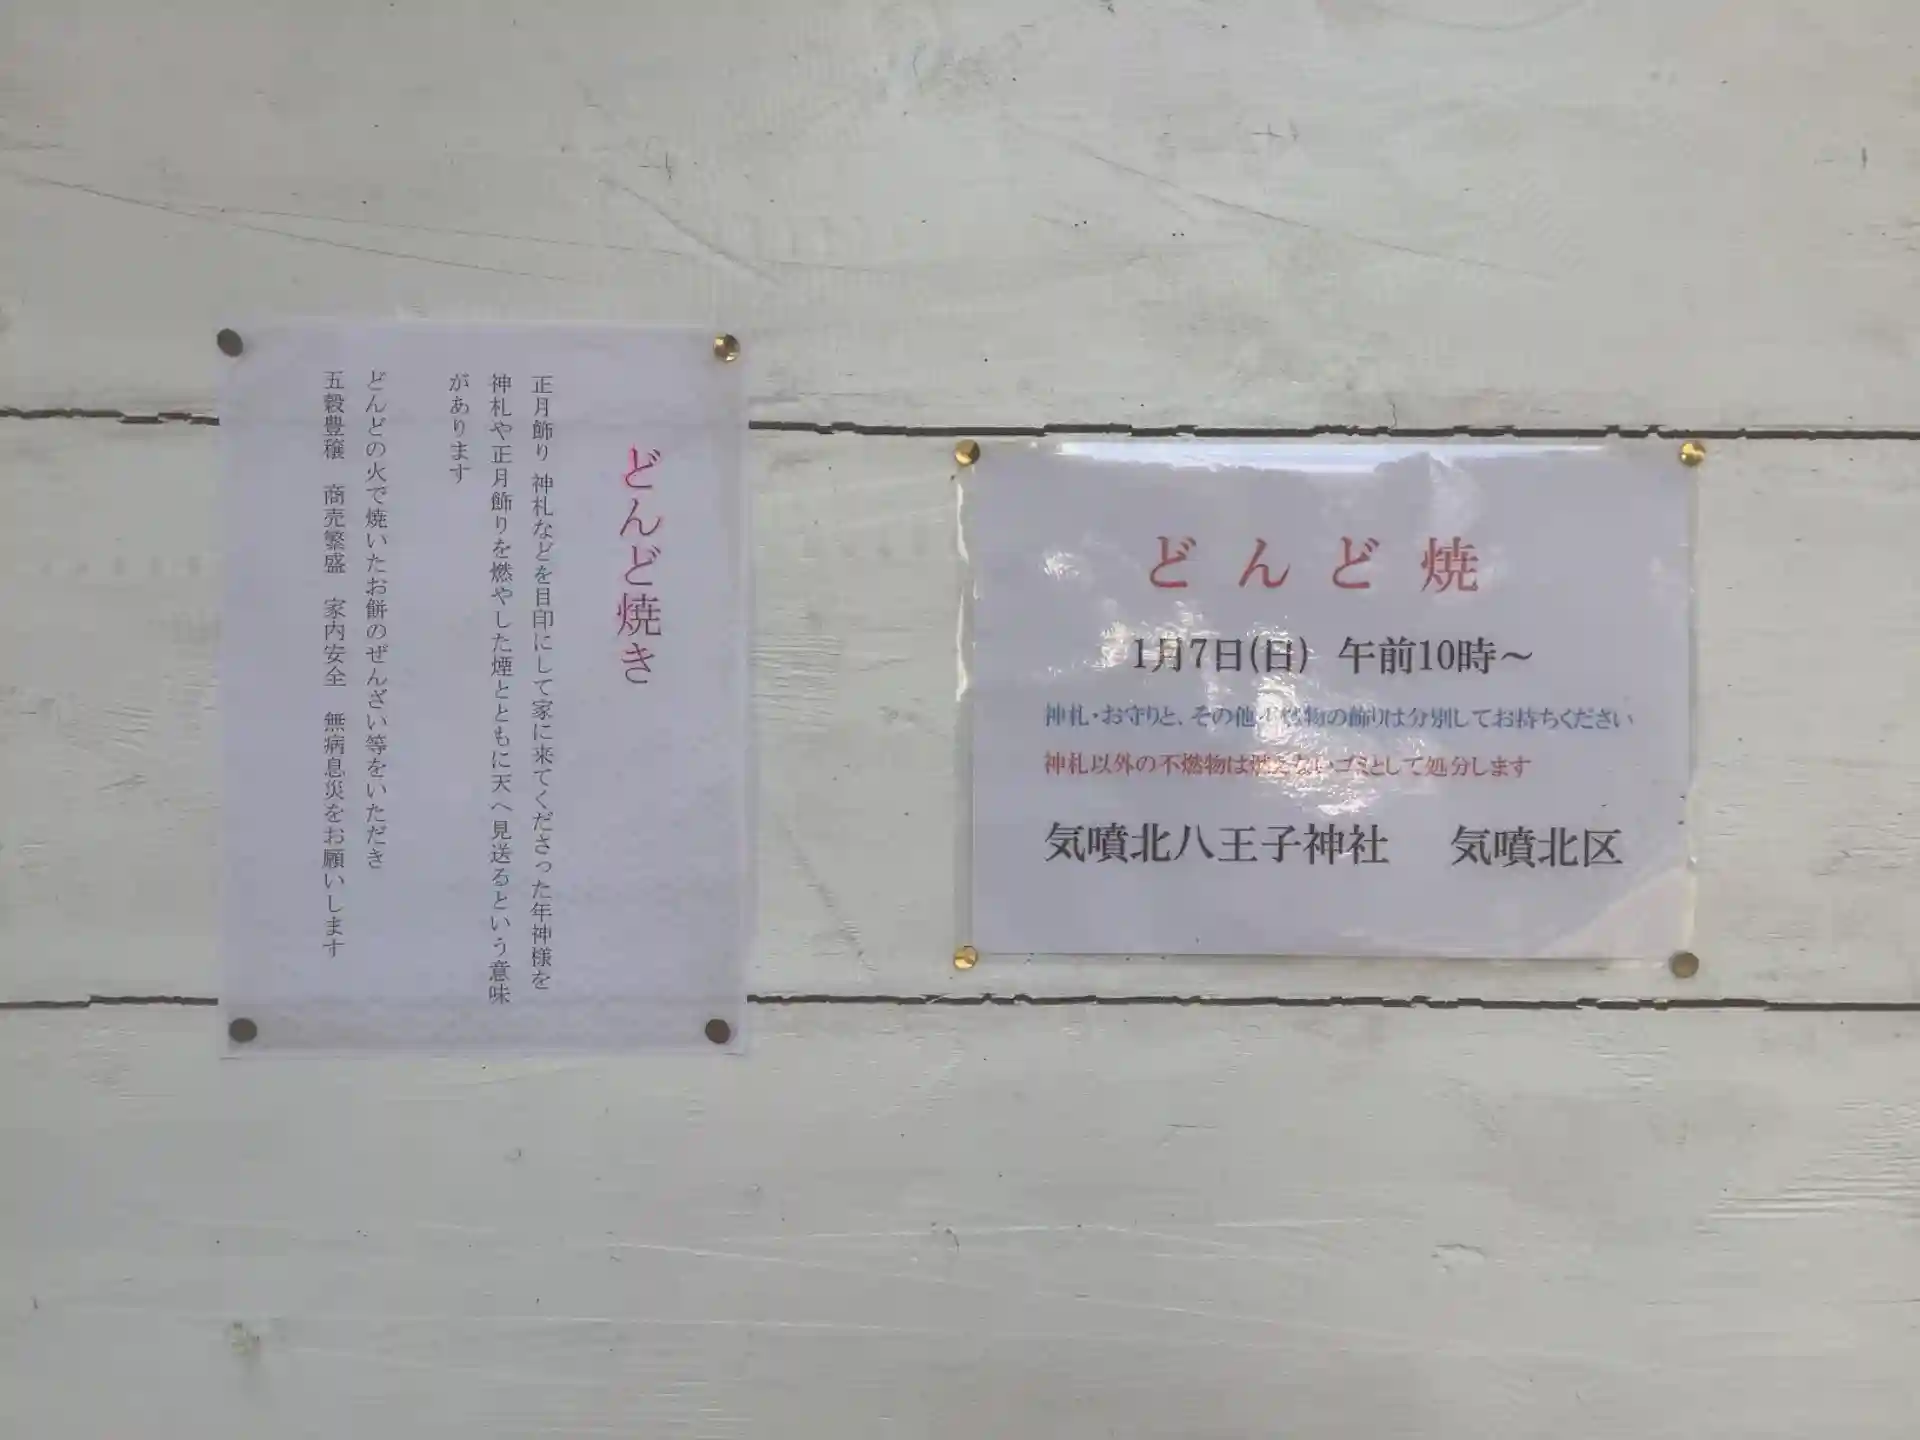 どんど焼き
正月飾り 神札などを目印にして家に来てくださった年神様を
神札や正月飾りを燃やした煙とともに天へ見送るという意味
があります
どんどの火で焼いたお餅のぜんざい等をいただき
五穀豊穣 商売繁盛 家内安全 無病息災をお願いします
どんど焼
1月7日(日) 午前10時～
神札・お守りと、その他不燃物の飾りは分別してお持ちください
神札以外の不燃物は燃えないゴミとして処分します
気噴北八王子神社 気噴北区